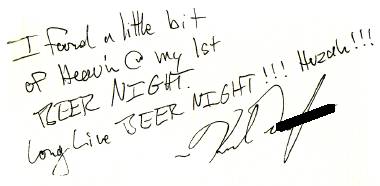 I found a little bit
of Heav'n @ my 1st
BEER NIGHT.
Long Live BEER NIGHT!!! Huzzah!!!